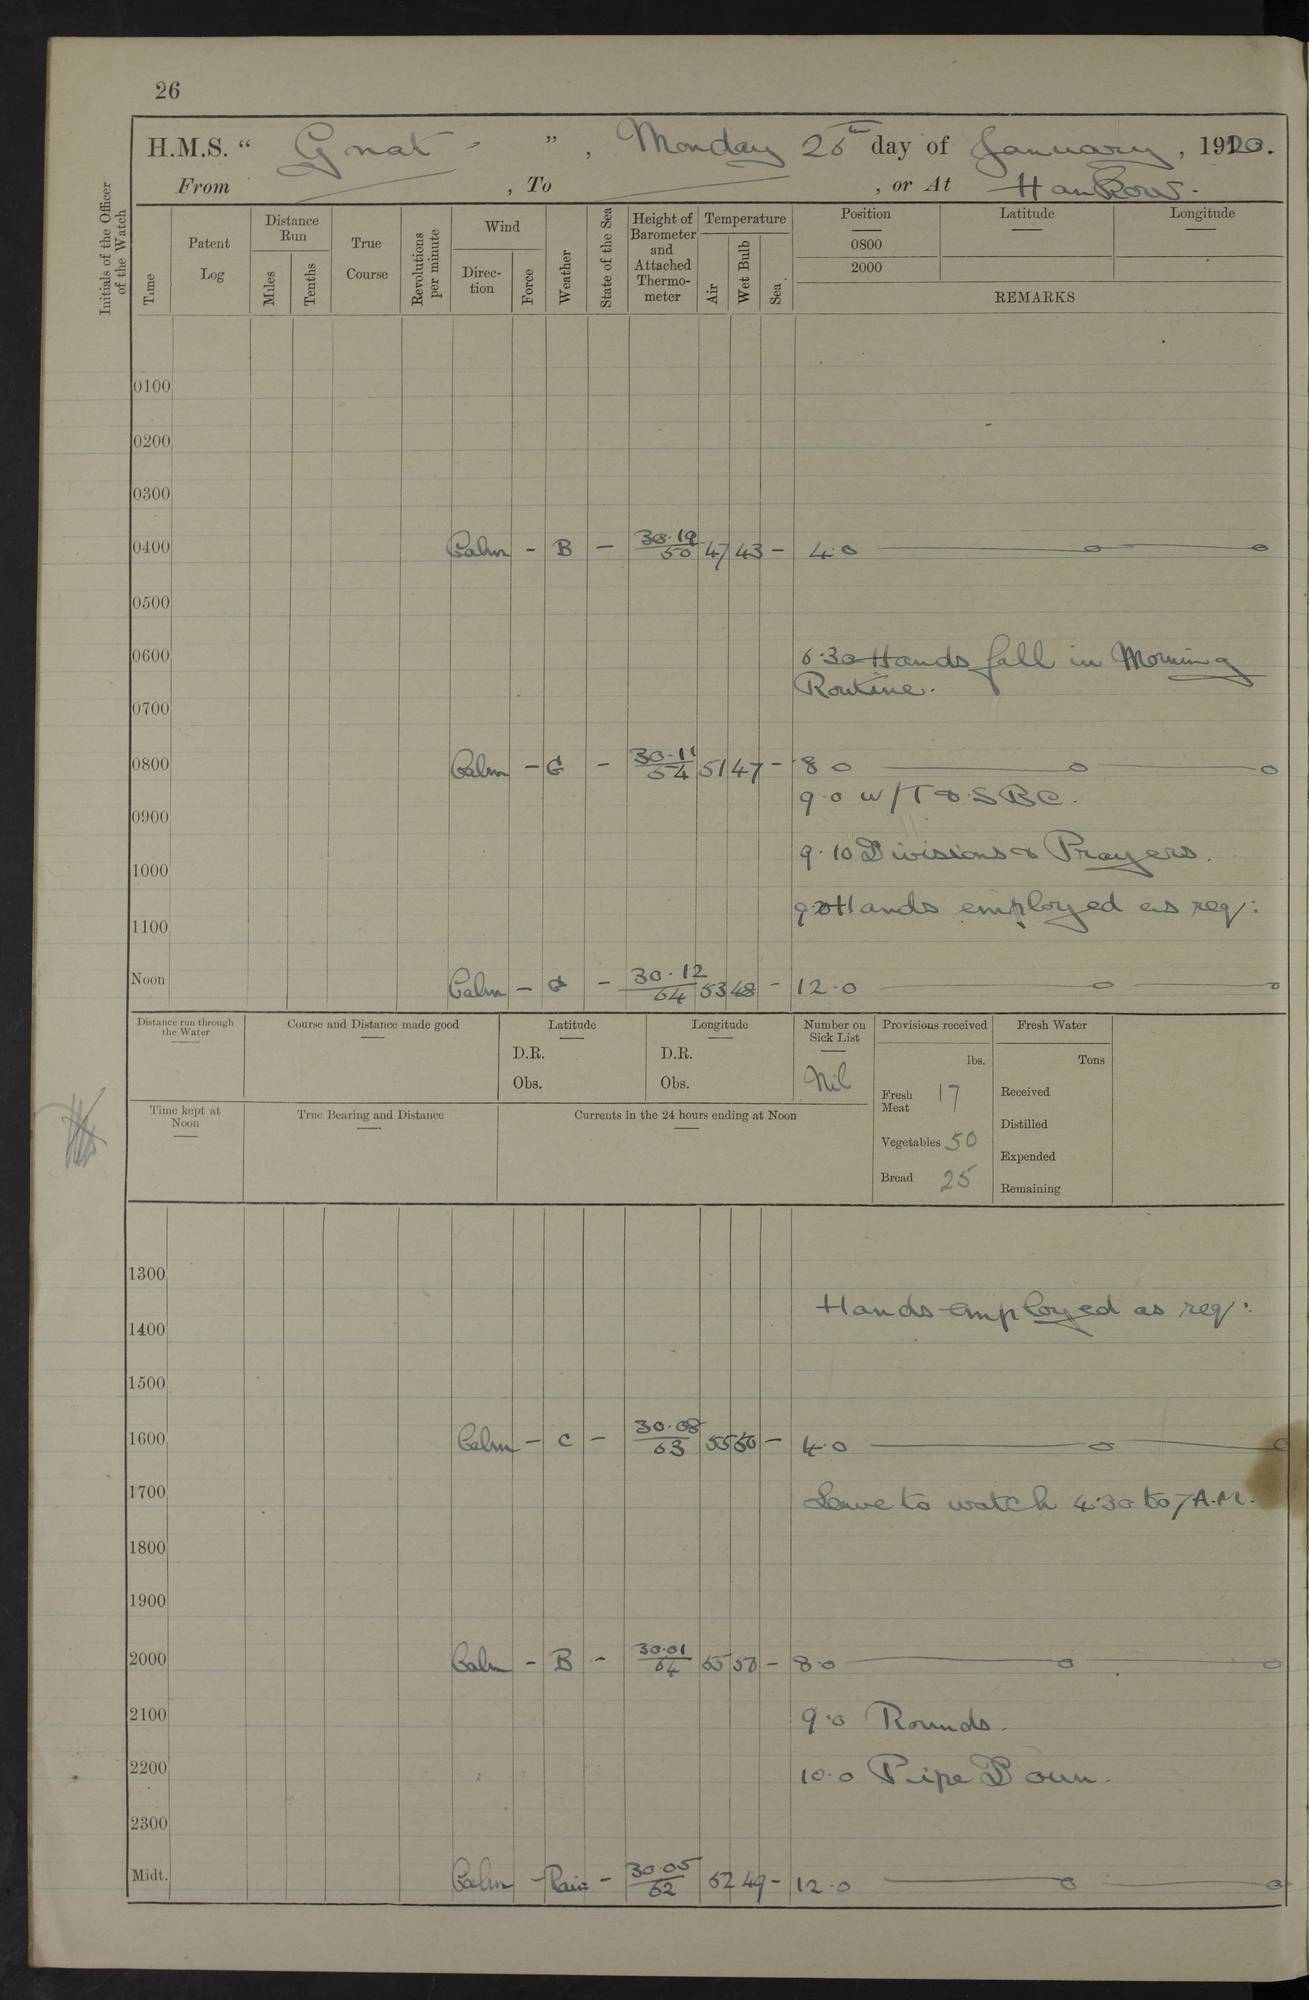 26
H.M.S. " Gnat ", Monday 26th day of January, 1920.
From , To , or At Hankow.
Initials of the Officer of the Watch
Time
Patent Log
Distance Run
Miles
Tenths
True Course
Revolutions per minute
Wind
Direction
Force
Weather
State of the Sea
Height of Barometer and Attached Thermometer
Temperature
Air
Wet Bulb
Sea
Position
0800
2000
Latitude
Longitude
REMARKS
0100
0200
0300
0400 Calm - B - 30.19/50 47 43 - 4.0
0500
0600 6.30 Hands fall in Morning
Routine.
0700
0800 Calm - G - 30.11/54 51 47 - 8 0
9.0 W/T & SBC.
0900
9.10 Divisions & Prayers.
1000
9.20 Hands employed as req:
1100
Noon Calm - G - 30.12/54 53 48 - 12.0
Distance run through the Water
Course and Distance made good
Latitude
D.R.
Obs.
Longitude
D.R.
Obs.
Number on Sick List
Nil
Provisions received
lbs.
Fresh Meat 17
Vegetables 50
Bread 25
Fresh Water
Tons
Received
Distilled
Expended
Remaining
Time kept at Noon
True Bearing and Distance
Currents in the 24 hours ending at Noon
1300
Hands employed as req:
1400
1500
1600 Calm - C - 30.08/53 55 50 - 4.0
1700 Leave to watch 4.30 to 7 A.M.
1800
1900
2000 Calm - B - 30.01/54 55 50 - 8.0
2100 9.0 Rounds.
2200 10.0 Pipe Down.
2300
Midt. Calm - Rain - 30.05/52 52 49 - 12.0